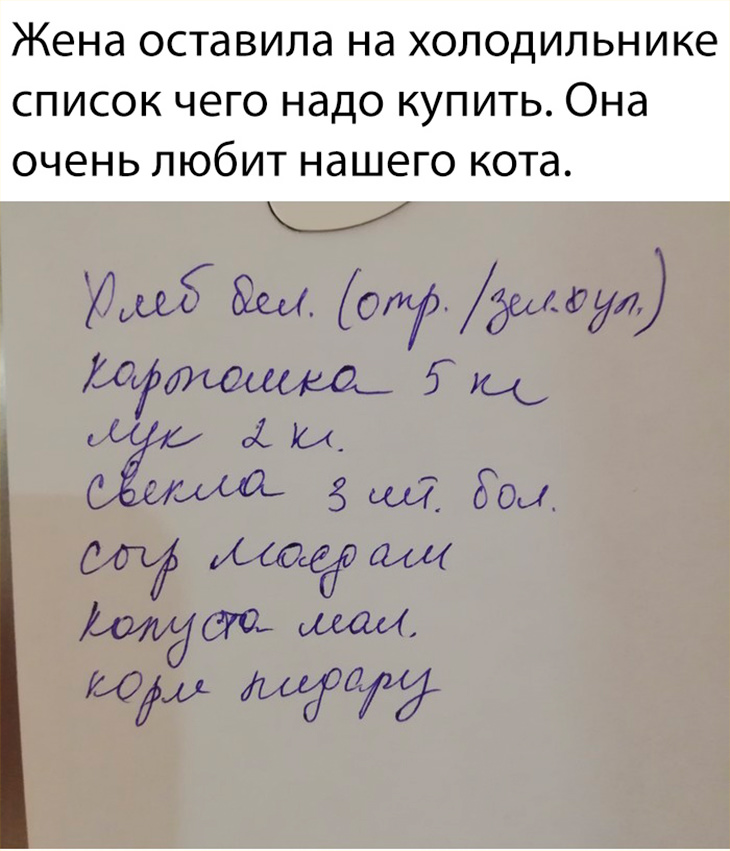 Жена оставила на холодильнике
список чего надо купить. Она
очень любит нашего кота.
Хлеб бел. (отр. /зел.бул.)
картошка 5 кг
лук 2 кг.
свекла 3 шт. бол.
сыр Маасдам
капуста мал.
корм пидару